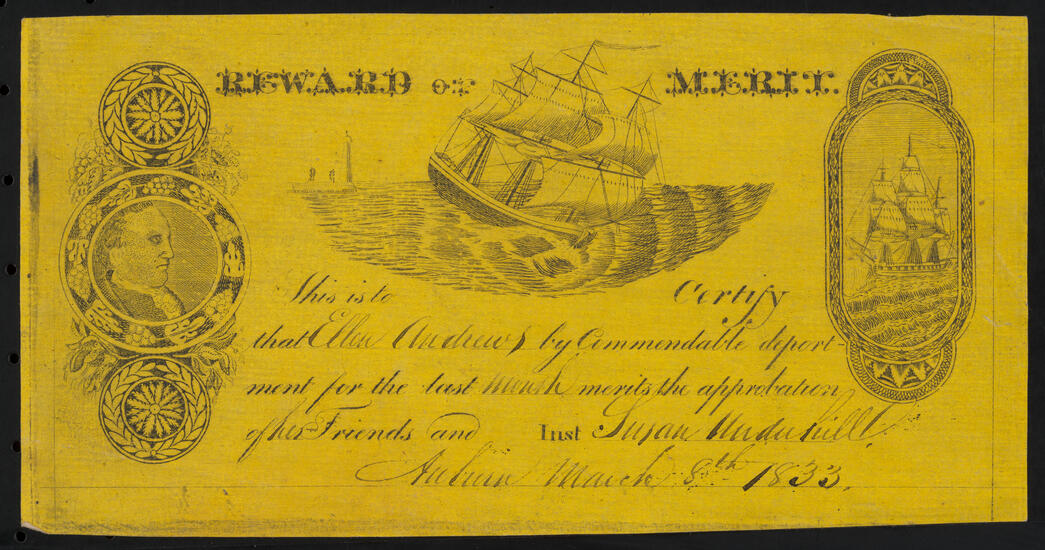 REWARD OF MERIT.
This is to Certify
that Ellen Andrews by Commendable deport-
ment for the last month merits the approbation
of her Friends and Inst Susan Underhill
Auburn March 8th 1833.